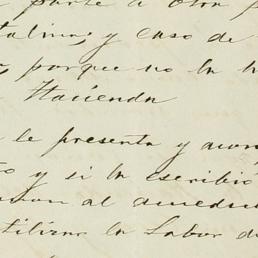 parte a otra p
talina; y caso de
, porque no la h
Hacienda
le presenta y
o y si la escribió
al
tilizar la Labor d